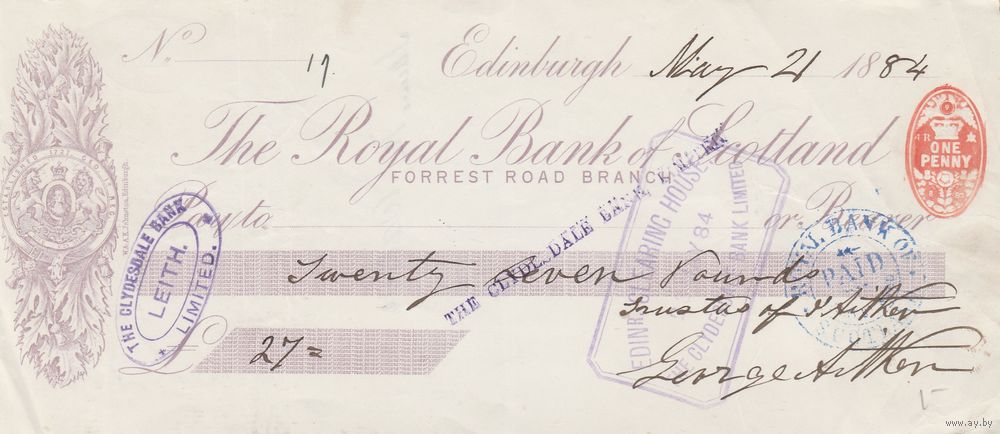 No. 17
Edinburgh May 21 1884
ONE
PENNY
The Royal Bank of Scotland
FORREST ROAD BRANCH
Pay to or Bearer
THE CLYDESDALE BANK
LEITH.
LIMITED.
THE CLYDESDALE BANK, LIMITED
EDINR CLEARING HOUSE
Y 84
THE CLYDESDALE BANK LIMITED
BANK OF
PAID
Twenty Seven Pounds
Trustees of J Aitken
£ 27=
George Aitken
www.ay.by